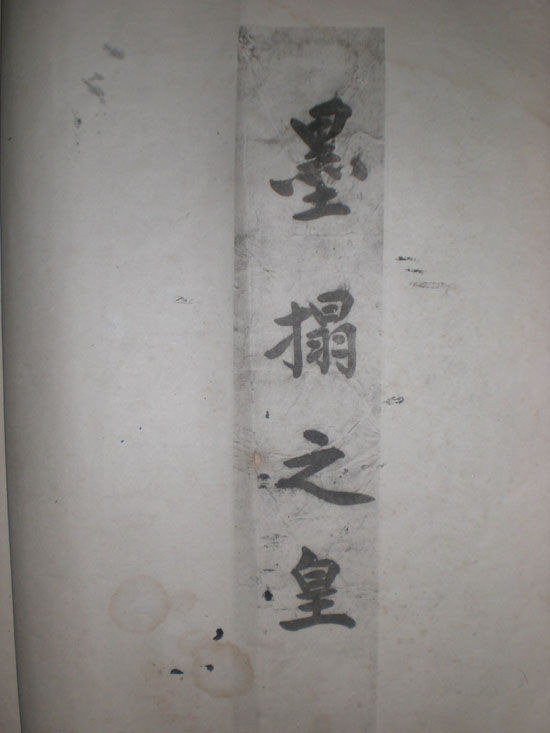 墨搨之皇